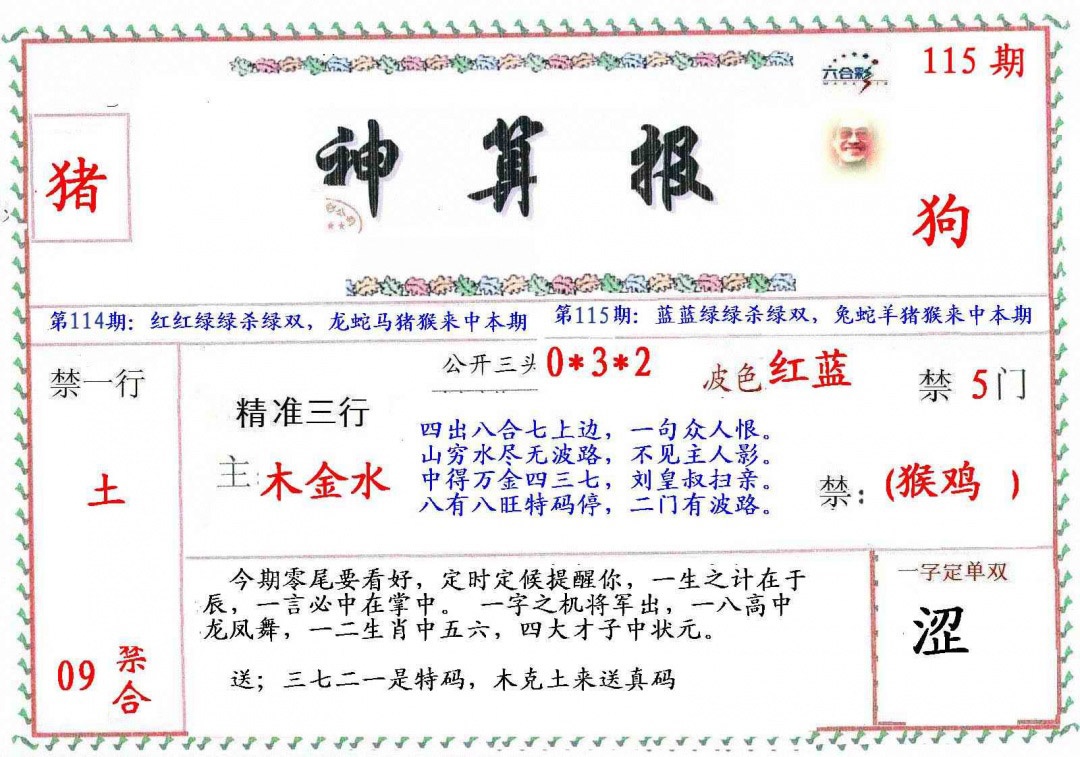 115 期
六合彩
神算报
猪
狗
第114期：红红绿绿杀绿双，龙蛇马猪猴来中本期
第115期：蓝蓝绿绿杀绿双，兔蛇羊猪猴来中本期
禁一行
土
09 禁合
精准三行
主：木金水
公开三头 0*3*2
波色 红蓝
禁 5 门
四出八合七上边，一句众人恨。
山穷水尽无波路，不见主人影。
中得万金四三七，刘皇叔扫亲。
八有八旺特码停，二门有波路。
禁：(猴鸡 )
今期零尾要看好，定时定候提醒你，一生之计在于
辰，一言必中在掌中。 一字之机将军出，一八高中
龙凤舞，一二生肖中五六，四大才子中状元。
送；三七二一是特码，木克土来送真码
一字定单双
涩